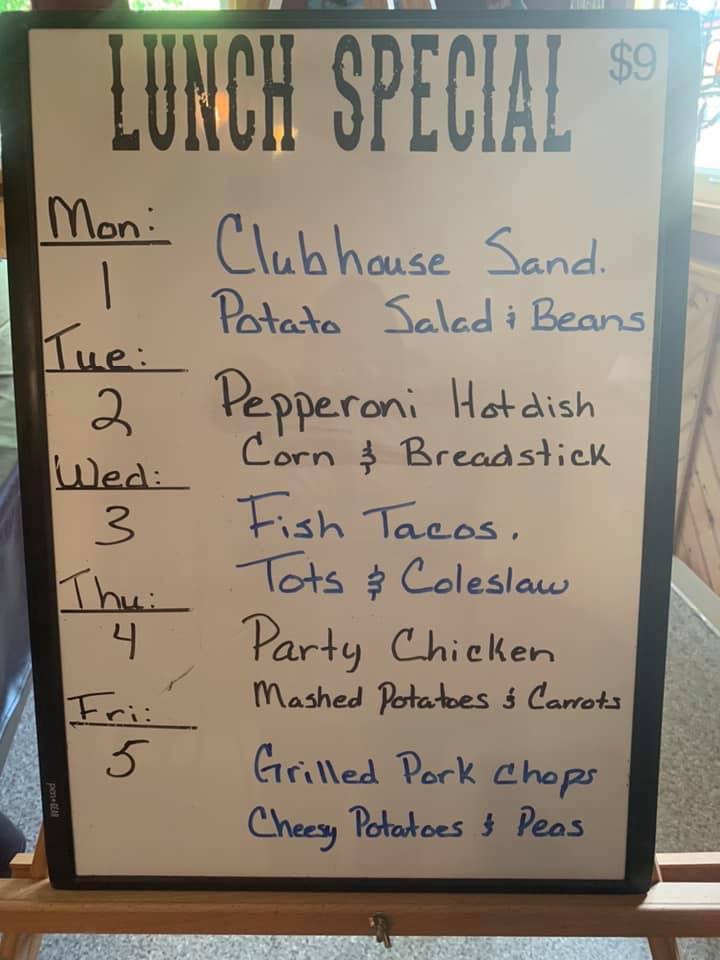 LUNCH SPECIAL $9
Mon:
1
Clubhouse Sand.
Potato Salad & Beans
Tue:
2
Pepperoni Hotdish
Corn & Breadstick
Wed:
3
Fish Tacos.
Tots & Coleslaw
Thu:
4
Party Chicken
Mashed Potatoes & Carrots
Fri:
5
Grilled Pork Chops
Cheesy Potatoes & Peas